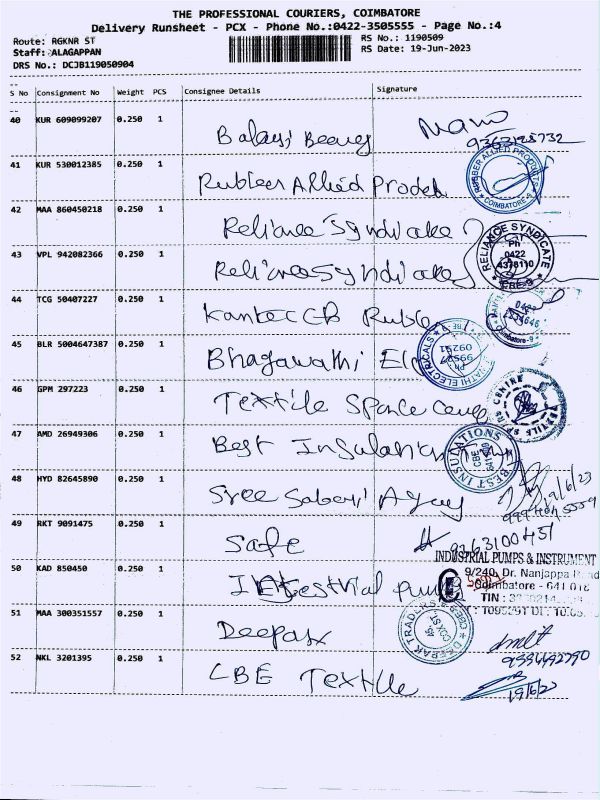 THE PROFESSIONAL COURIERS, COIMBATORE
Delivery Runsheet - PCX - Phone No.:0422-3505555 - Page No.:4
Route: RGKNR ST
RS No.: 1190509
Staff: ALAGAPPAN
RS Date: 19-Jun-2023
DRS No.: DCJB119050904
S No Consignment No Weight PCS Consignee Details Signature
40 KUR 609099207 0.250 1
9363125732
41 KUR 530012385 0.250 1 Rubber Allied Prodch
RUBBER ALLIED PRODUCTS
COIMBATORE-9
42 MAA 860450218 0.250 1 Reliance Syndicate
43 VPL 942082366 0.250 1 Reliance Syndicate
RELIANCE SYNDICATE
Ph
0422
4378110
CBE-9
44 TCG 50407227 0.250 1 Rubb
0422
Coimbatore-9
45 BLR 5004647387 0.250 1 Bhagawathi El
46 GPM 297223 0.250 1 Textile
TEXTILE CENTRE
47 AMD 26949306 0.250 1 Best Insulation
BEST INSULATIONS
CBE
48 HYD 82645890 0.250 1 Sree
19/6/23
49 RKT 9091475 0.250 1 Safe
9363100451
INDUSTRIAL PUMPS & INSTRUMENT
50 KAD 850450 0.250 1
9/240, Dr. Nanjappa
Coimbatore - 641 018
TIN :
51 MAA 300351557 0.250 1 Deepak
DEEPAK TRADERS
52 NKL 3201395 0.250 1 CBE Textile
19/6/23